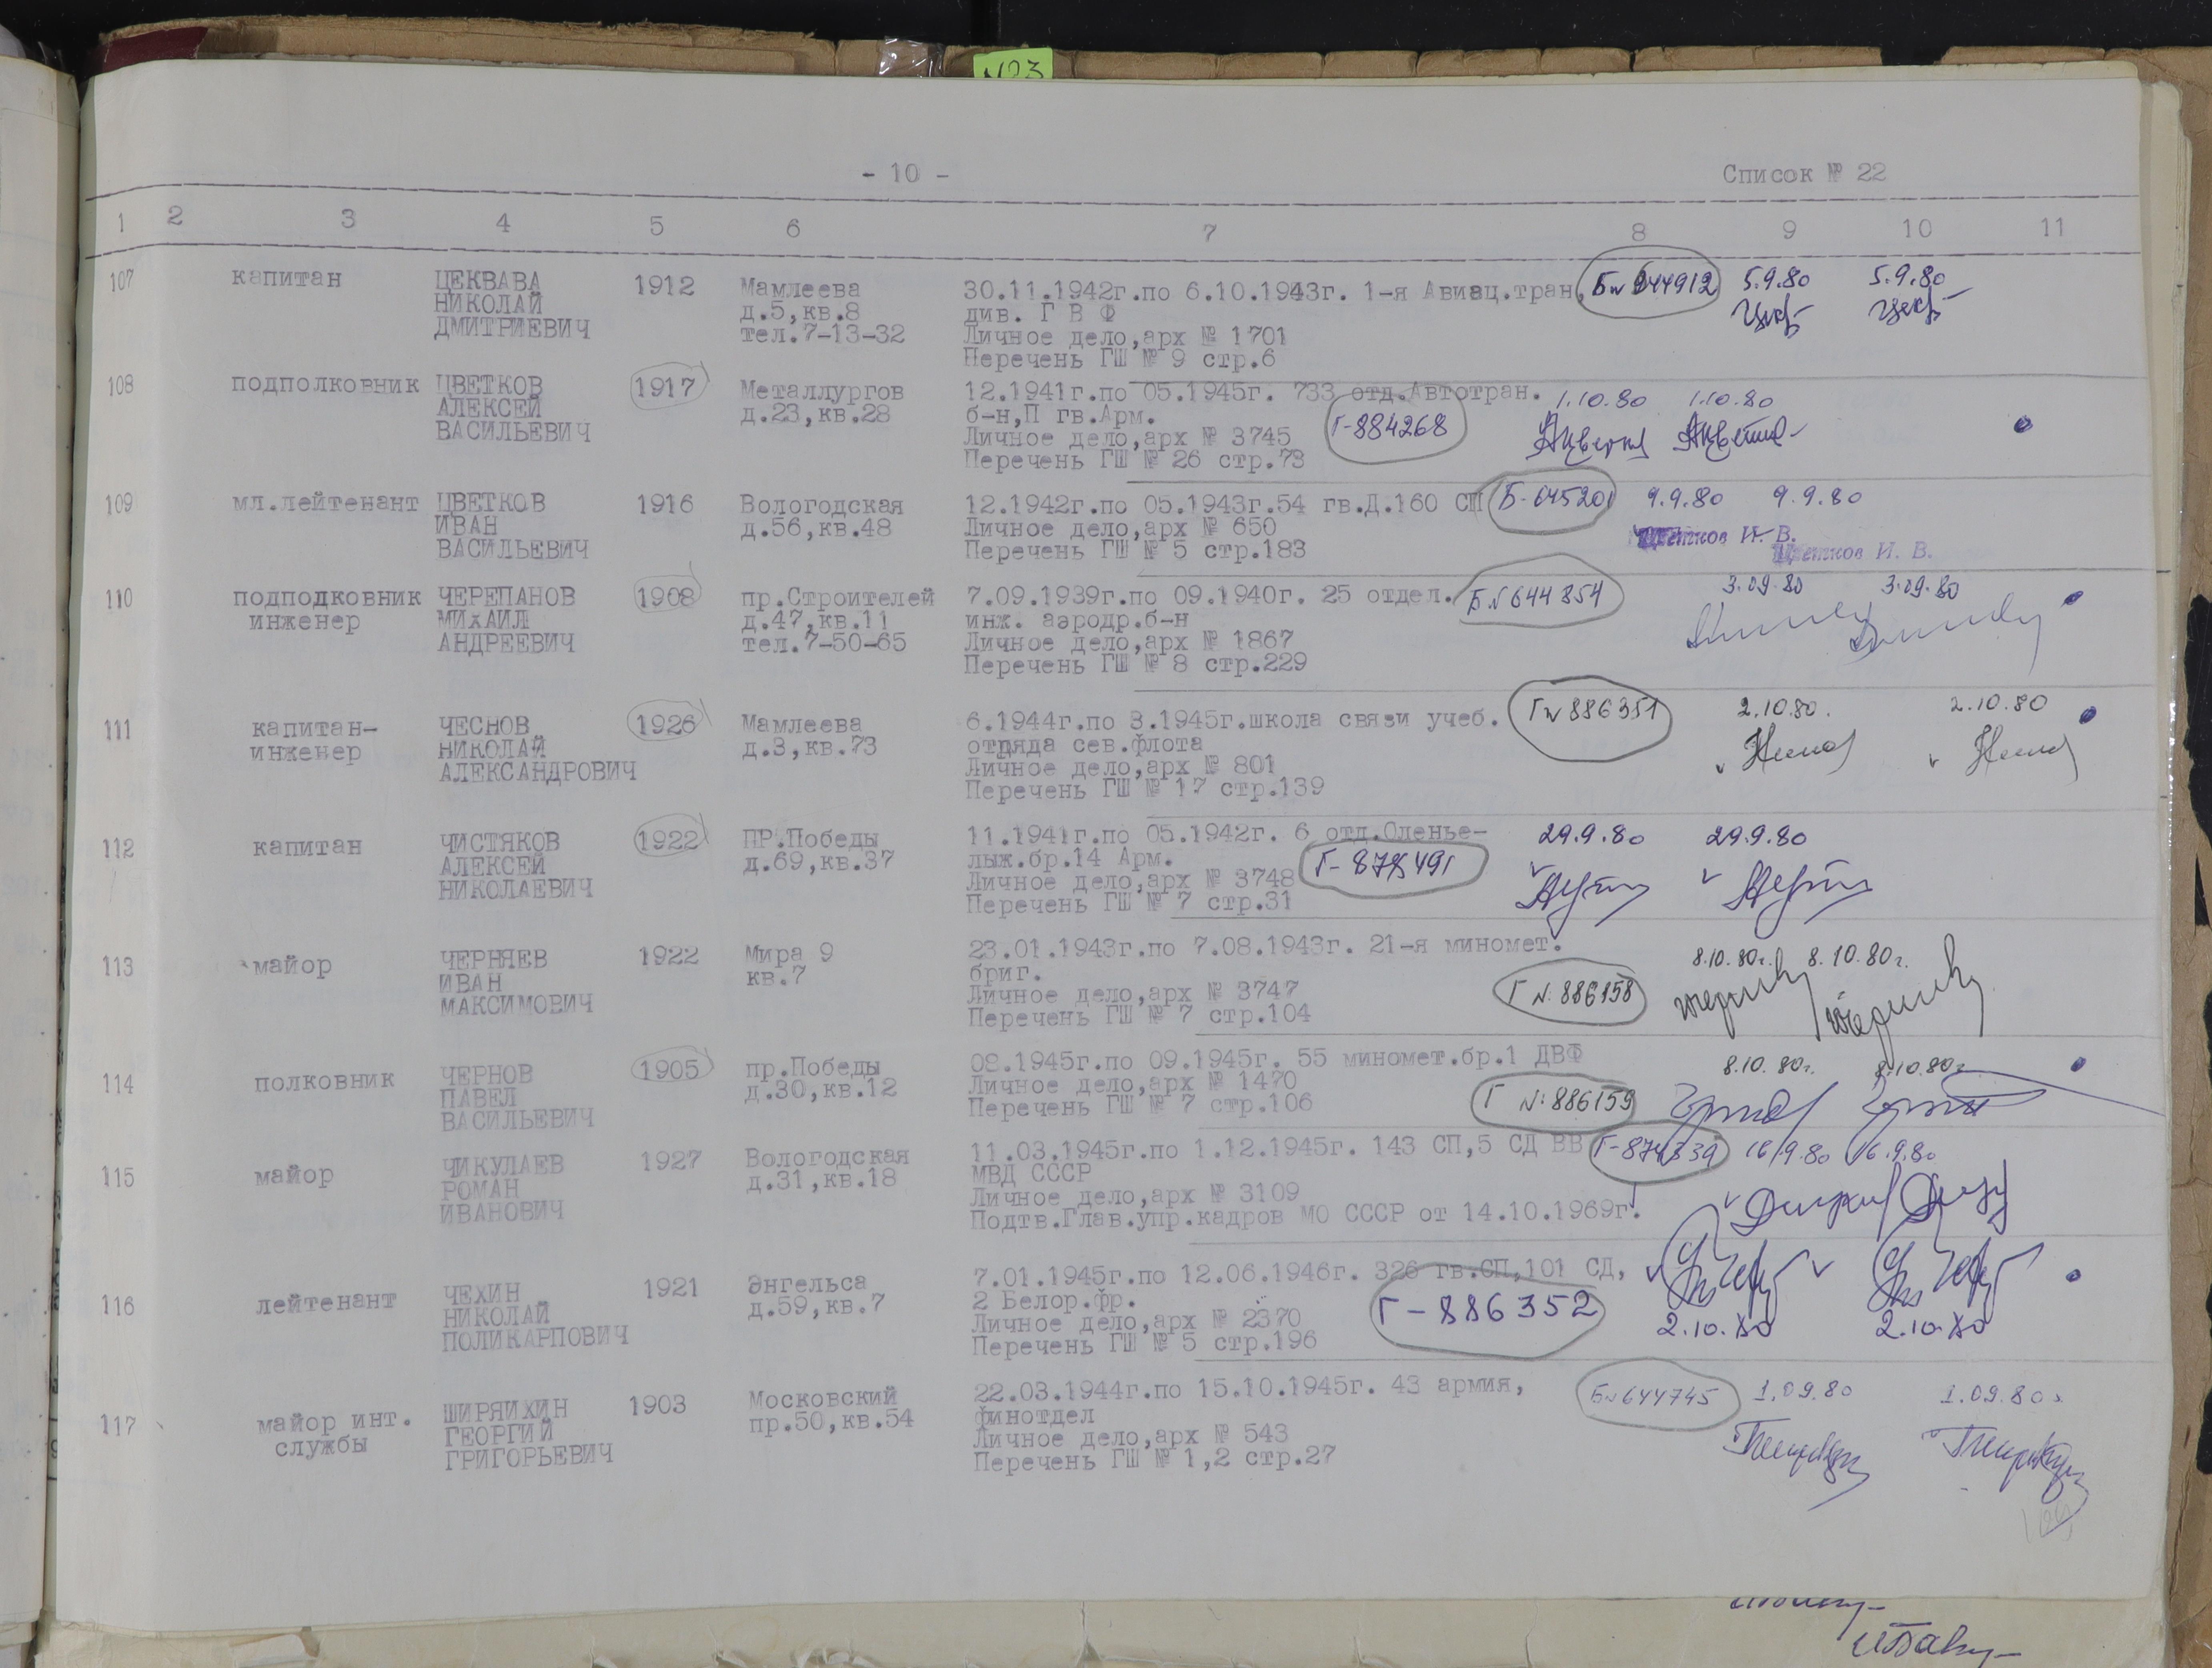 №23
- 10 -
Список № 22
1 2 3 4 5 6 7 8 9 10 11
107 капитан ЦЕКВАВА 1912 Мамлеева 30.11.1942г.по 6.10.1943г. 1-я Авиац.тран. Б№ 644912 5.9.80 5.9.80
НИКОЛАЙ д.5,кв.8 див. Г В Ф
ДМИТРИЕВИЧ тел.7-13-32 Личное дело,арх № 1701
Перечень ГШ № 9 стр.6
108 подполковник ЦВЕТКОВ 1917 Металлургов 12.1941г.по 05.1945г. 733 отд.Автотран. 1.10.80 1.10.80
АЛЕКСЕЙ д.23,кв.28 б-н,П гв.Арм. Г-884268
ВАСИЛЬЕВИЧ Личное дело,арх № 3745
Перечень ГШ № 26 стр.73
109 мл.лейтенант ЦВЕТКОВ 1916 Вологодская 12.1942г.по 05.1943г.54 гв.Д.160 СП Б-645201 9.9.80 9.9.80
ИВАН д.56,кв.48 Личное дело,арх № 650
ВАСИЛЬЕВИЧ Перечень ГШ № 5 стр.183 Цветков И. В.
Цветков И. В.
110 подподковник ЧЕРЕПАНОВ 1908 пр.Строителей 7.09.1939г.по 09.1940г. 25 отдел. Б№644854 3.09.80 3.09.80
инженер МИХАИЛ д.47,кв.11 инж. аэродр.б-н
АНДРЕЕВИЧ тел.7-50-65 Личное дело,арх № 1867
Перечень ГШ № 8 стр.229
111 капитан- ЧЕСНОВ 1926 Мамлеева 6.1944г.по 3.1945г.школа связи учеб. Г№ 886351 2.10.80. 2.10.80
инженер НИКОЛАЙ д.3,кв.73 отряда сев.флота
АЛЕКСАНДРОВИЧ Личное дело,арх № 801
Перечень ГШ № 17 стр.139
112 капитан ЧИСТЯКОВ 1922 ПР.Победы 11.1941г.по 05.1942г. 6 отд.Оленье- 29.9.80 29.9.80
АЛЕКСЕЙ д.69,кв.37 лыж.бр.14 Арм.
НИКОЛАЕВИЧ Личное дело,арх № 3748
Перечень ГШ № 7 стр.31
113 майор ЧЕРНЯЕВ 1922 Мира 9 23.01.1943г.по 7.08.1943г. 21-я миномет. 8.10.80г. 8.10.80г.
ИВАН кв.7 бриг.
МАКСИМОВИЧ Личное дело,арх № 3747 Г №: 886158
Перечень ГШ № 7 стр.104
114 полковник ЧЕРНОВ 1905 пр.Победы 08.1945г.по 09.1945г. 55 миномет.бр.1 ДВФ 8.10.80г. 8.10.80г.
ПАВЕЛ д.30,кв.12 Личное дело,арх № 1470
ВАСИЛЬЕВИЧ Перечень ГШ № 7 стр.106 Г №:886159
115 майор ЧИКУЛАЕВ 1927 Вологодская 11.03.1945г.по 1.12.1945г. 143 СП,5 СД ВВ 16.9.80 16.9.80
РОМАН д.31,кв.18 МВД СССР
ИВАНОВИЧ Личное дело,арх № 3109
Подтв.Глав.упр.кадров МО СССР от 14.10.1969г.
116 лейтенант ЧЕХИН 1921 Энгельса 7.01.1945г.по 12.06.1946г. 326 гв.СП,101 СД,
НИКОЛАЙ д.59,кв.7 2 Белор.фр. Г-886352
ПОЛИКАРПОВИЧ Личное дело,арх № 2370 2.10.80 2.10.80
Перечень ГШ № 5 стр.196
117 майор инт. ШИРЯИХИН 1903 Московский 22.03.1944г.по 15.10.1945г. 43 армия, Б№644745 1.09.80 1.09.80г
службы ГЕОРГИЙ пр.50,кв.54 финотдел
ГРИГОРЬЕВИЧ Личное дело,арх № 543
Перечень ГШ № 1,2 стр.27